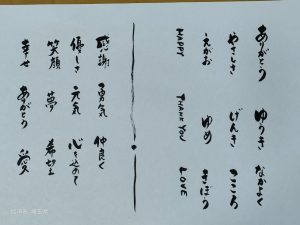 ありがとう ゆうき なかよく
やさしさ げんき こころ
えがお ゆめ きぼう
HAPPY THANK YOU LOVE
感謝 勇気 仲良く
優しさ 元気 心を込めて
笑顔 夢 希望
幸せ ありがとう 愛